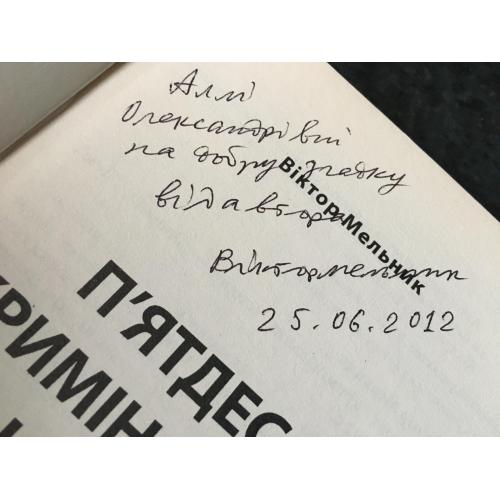 Аллі
Олександрівні
на добру згадку
від автора
Віктор Мельник
25.06.2012
Віктор Мельник
П'ЯТДЕС
КРИМІН